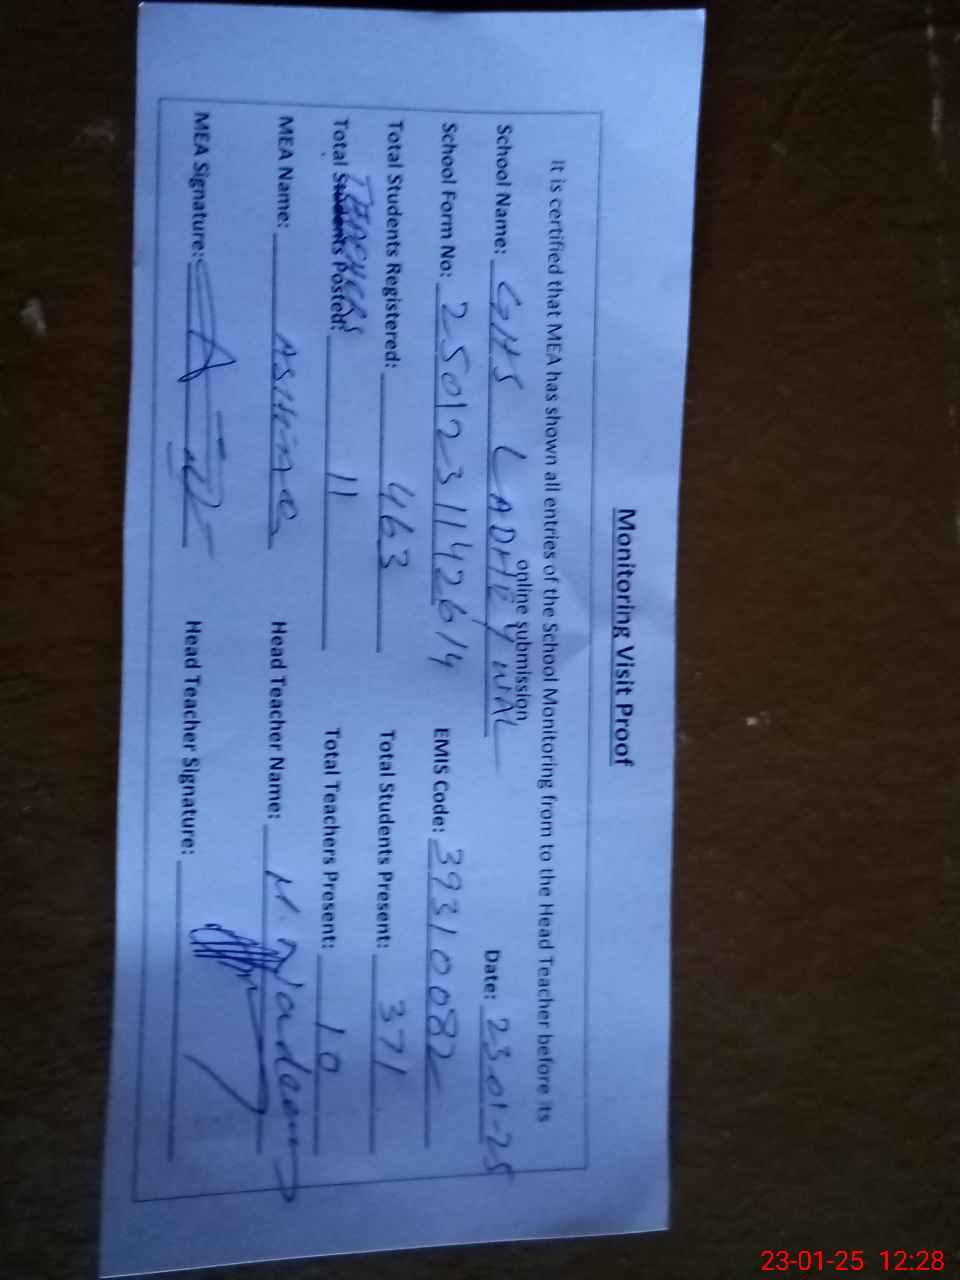 Monitoring Visit Proof
It is certified that MEA has shown all entries of the School Monitoring from to the Head Teacher before its
online submission
School Name: GHS LADHEYWAL Date: 23-01-25
School Form No: 2501231142614 EMIS Code: 39310082
Total Students Registered: 463 Total Students Present: 371
TEACHERS
Total Students Posted: 11 Total Teachers Present: 10
MEA Name: Head Teacher Name: M. Nadeem
MEA Signature: Head Teacher Signature:
23-01-25 12:28